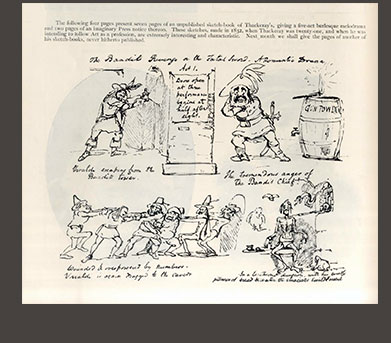 The following four pages present seven pages of an unpublished sketch-book of Thackeray's, giving a five-act burlesque melodrama
and two pages of an imaginary Press notice thereon. These sketches, made in 1832, when Thackeray was twenty-one, and when he was
intending to follow Art as a profession, are extremely interesting and characteristic. Next month we shall give the pages of another of
his sketch-books, never hitherto published.
The Bandit's Revenge or the Fatal Sword. A Romantic Drama.
Act 1.
Doors open
at three
performance
begins at
half after
eight.
GUNPOWDER
Vivaldi escaping from the
Bandit's tower.
The tremendous anger of
The Bandit Chief
Wounded & overpowered by numbers.
Vivaldi is again dragged to the
In a dungeon, with
of bread & water the